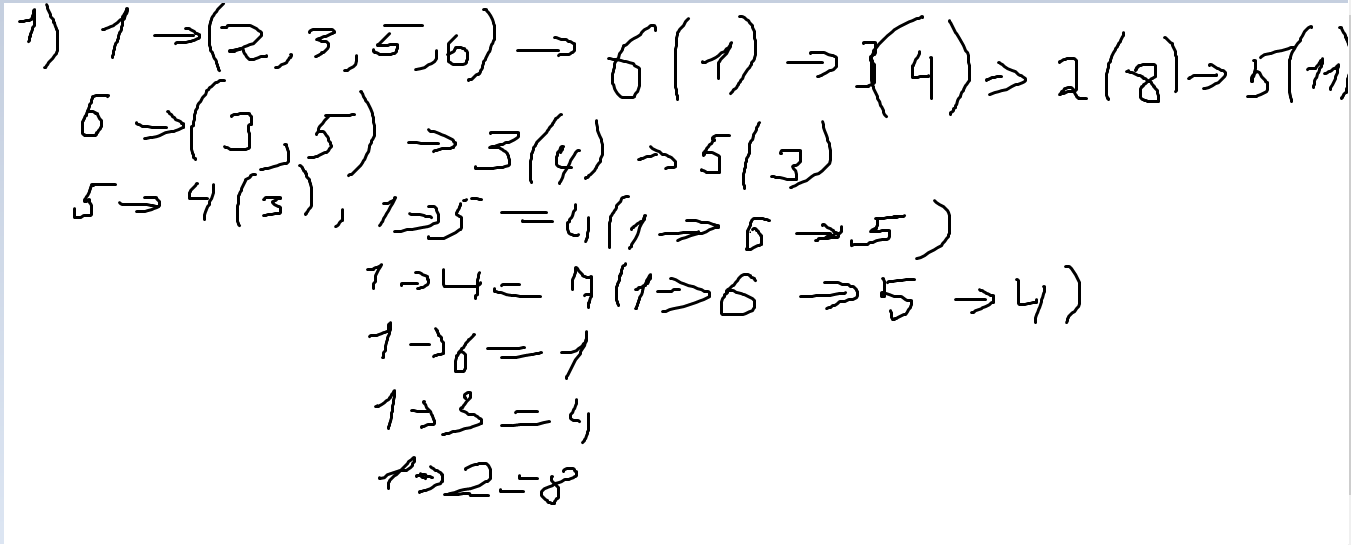 1) 1 → (2, 3, 5, 6) → 6 (1) → 3 (4) → 2 (8) → 5 (11)
6 → (3, 5) → 3 (4) → 5 (3)
5 → 4 (3), 1 → 5 = 4 (1 → 6 → 5)
1 → 4 = 7 (1 → 6 → 5 → 4)
1 → 6 = 1
1 → 3 = 4
1 → 2 = 8